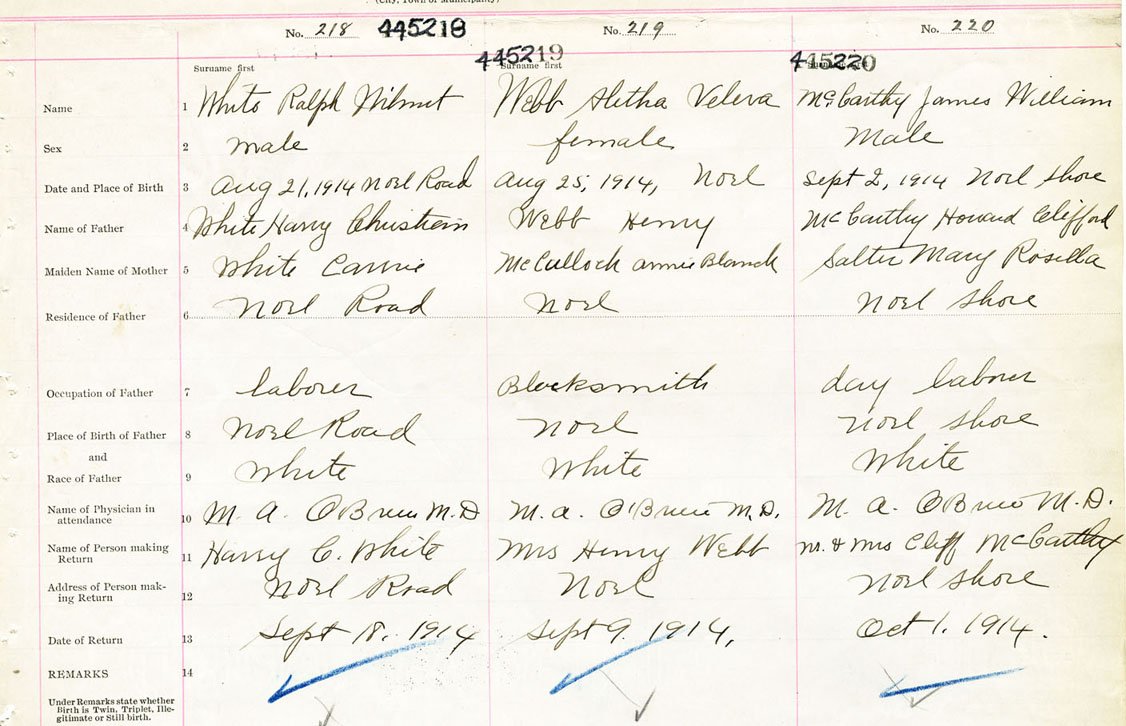 (City, Town or Municipality)
No. 218 445218 No. 219 No. 220
445219 445220
Surname first Surname first
Name 1 White Ralph Wilmot Webb Aletha Veleva McCarthy James William
Sex 2 male female Male
Date and Place of Birth 3 Aug 21, 1914 Noel Road Aug 25, 1914, Noel Sept 2, 1914 Noel Shore
Name of Father 4 White Harry Christian Webb Henry McCarthy Howard Clifford
Maiden Name of Mother 5 White Carrie McCullock Annie Blanch Salter Mary Rosella
Residence of Father 6 Noel Road Noel Noel Shore
Occupation of Father 7 laborer Blacksmith day laborer
Place of Birth of Father 8 Noel Road Noel Noel Shore
and
Race of Father 9 White White White
Name of Physician in
attendance 10 M. A. O'Brien M.D M. A. O'Brien M.D. M. A. O'Brien M.D.
Name of Person making
Return 11 Harry C. White Mrs Henry Webb Mr. & Mrs Cliff McCarthy
Address of Person mak-
ing Return 12 Noel Road Noel Noel Shore
Date of Return 13 Sept 18, 1914 Sept 9, 1914, Oct 1. 1914.
REMARKS 14
Under Remarks state whether
Birth is Twin, Triplet, Ille-
gitimate or Still birth.